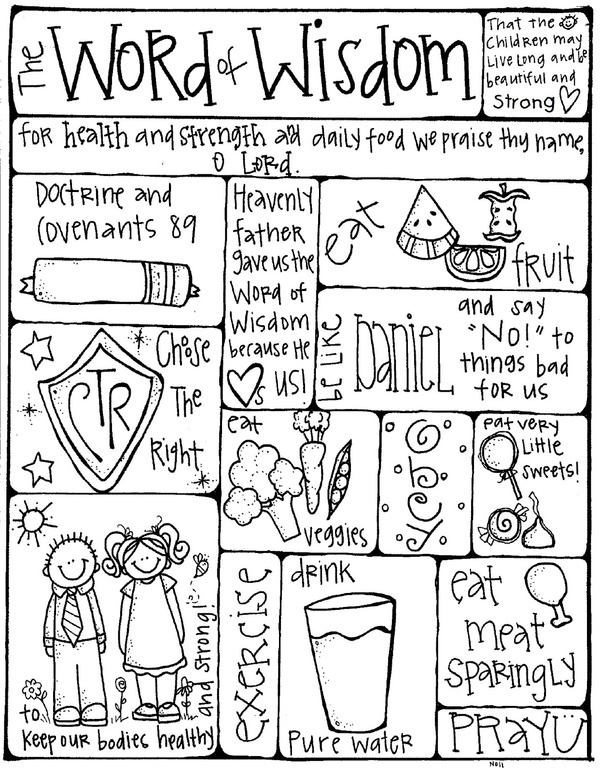 The Word of Wisdom
That the
Children may
Live Long and be
beautiful and
Strong
for health and strength and daily food we praise thy name,
O Lord.
Doctrine and
Covenants 89
Heavenly
father
gave us the
Word of
Wisdom
because He
♡s US!
eat
fruit
be like
Daniel
and say
"No!" to
things bad
for us
CTR
Choose
The
Right
eat
veggies
obey
eat very
Little
sweets!
to
keep our bodies healthy
and strong!
exercise
drink
Pure water
eat
meat
Sparingly
PRAY Ü